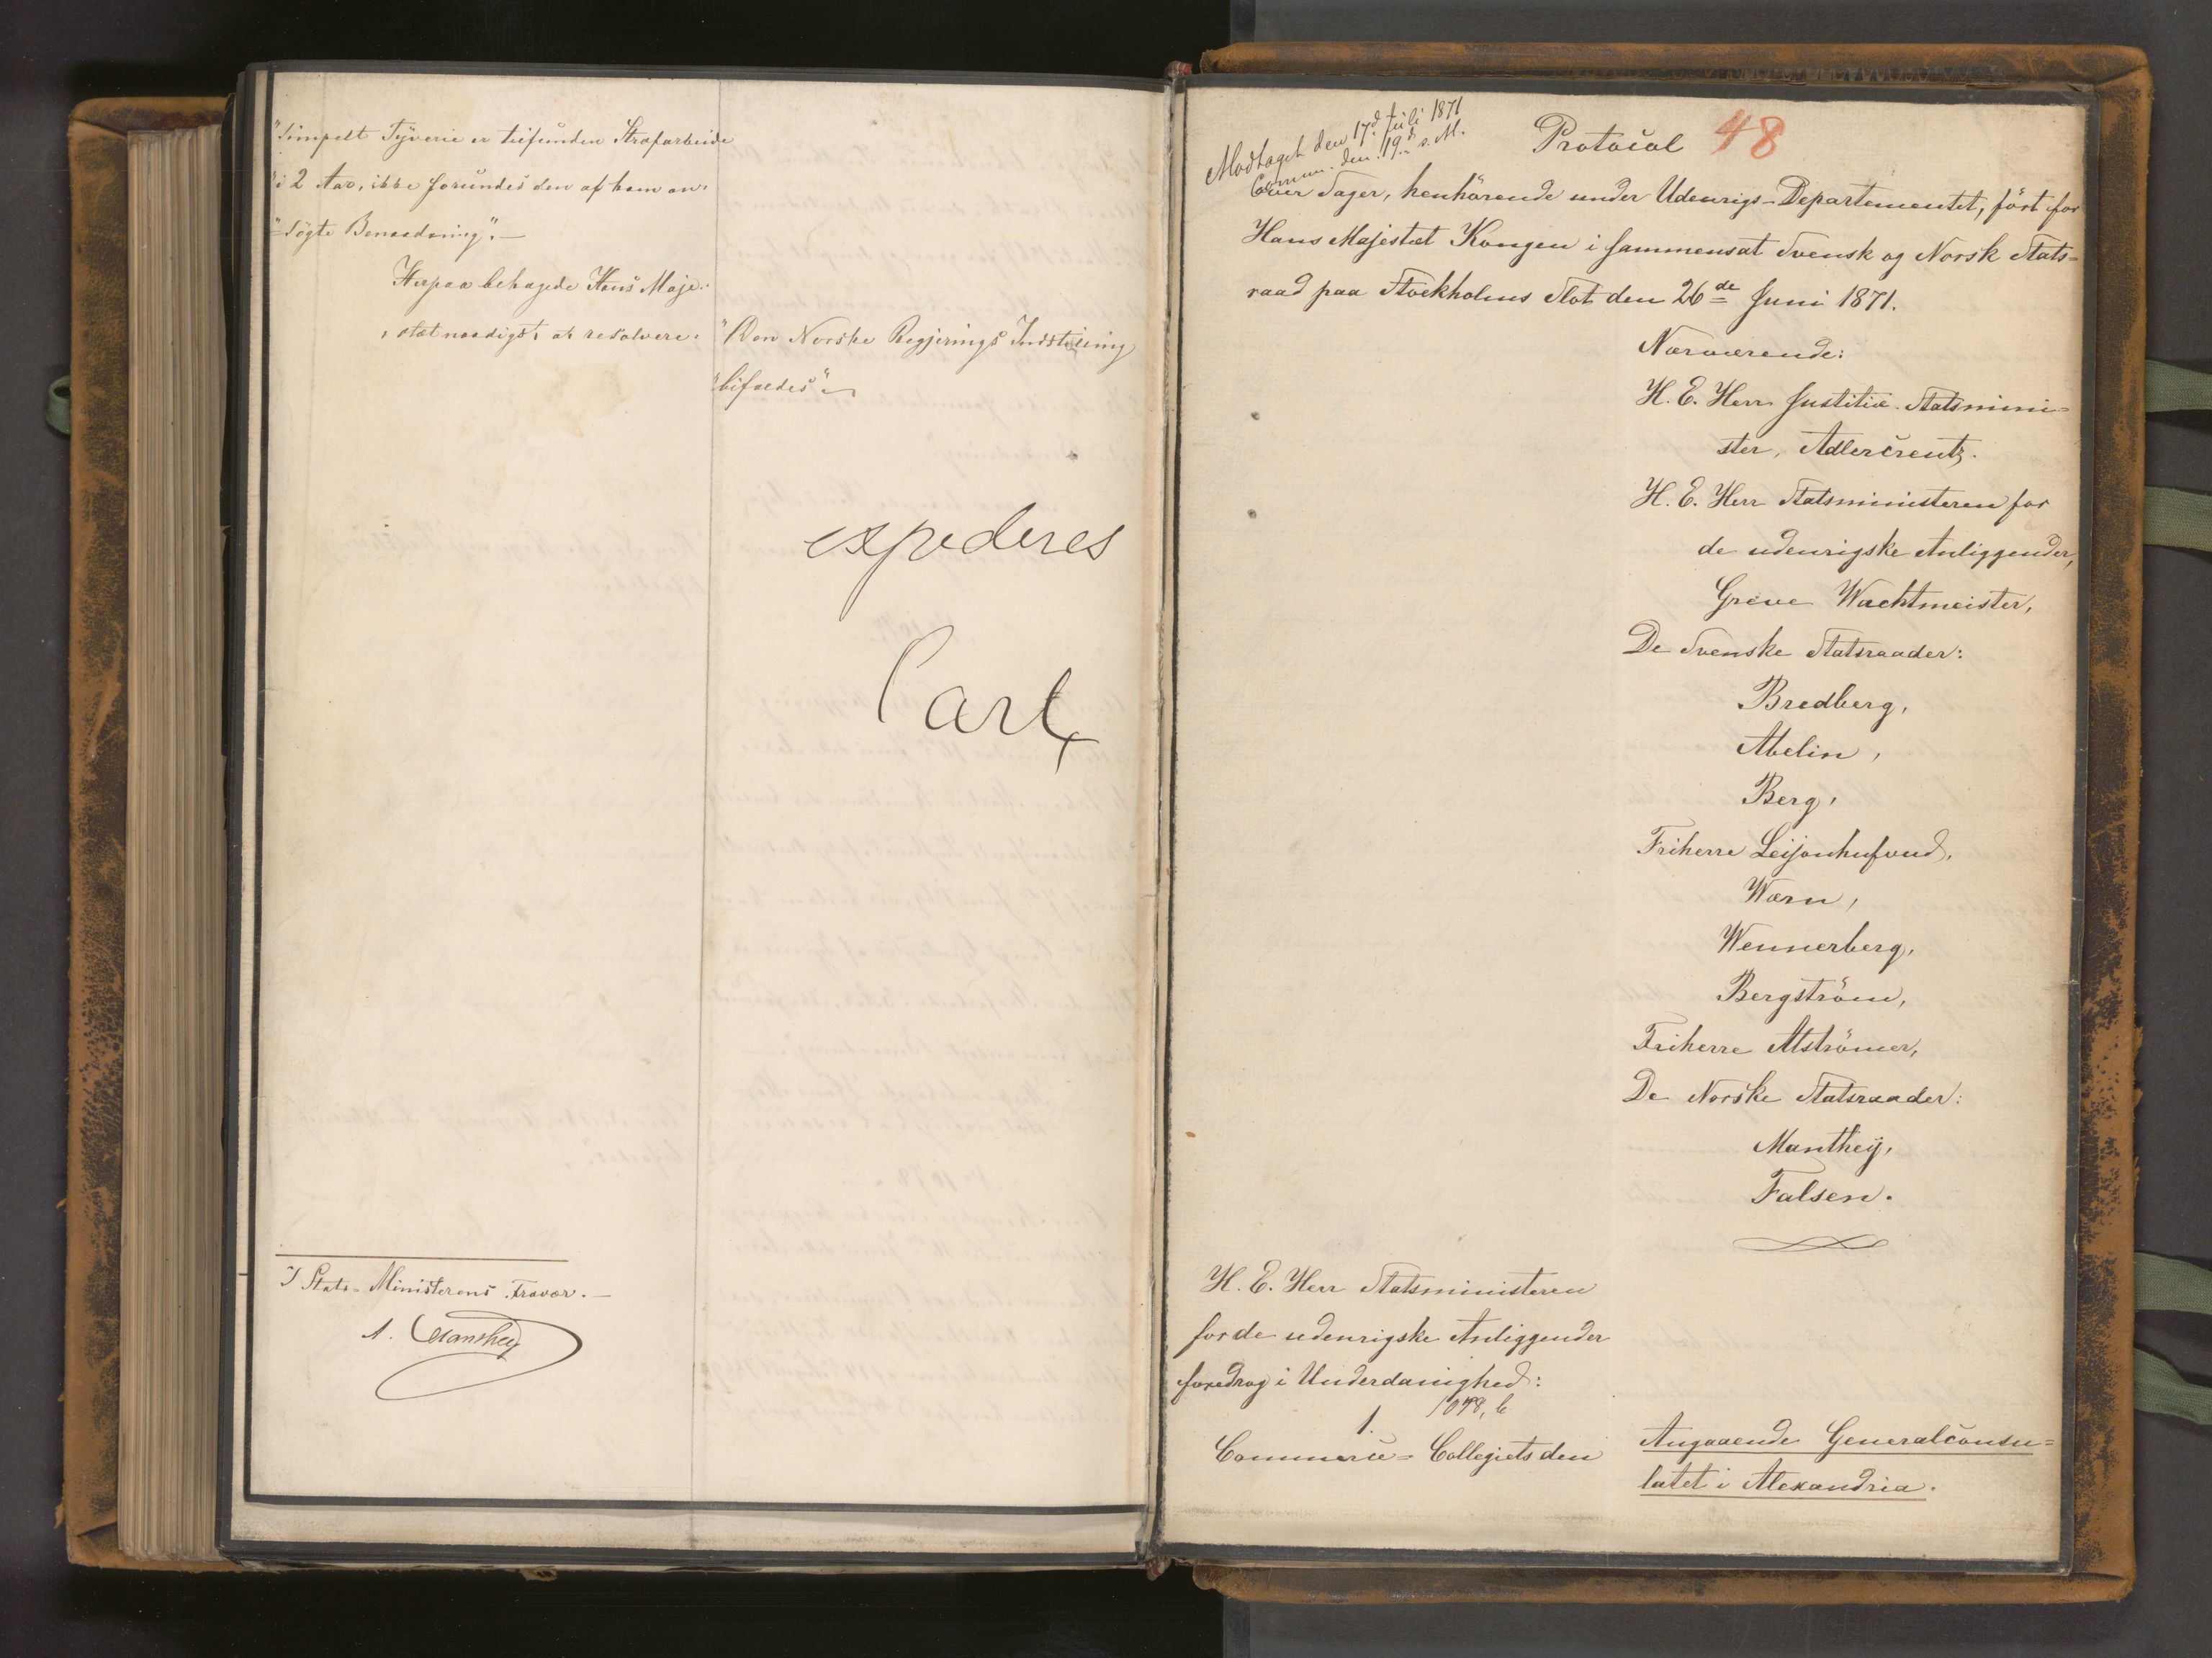 "simpelt Tyverie er tilfunden Strafarbeide
"i 2 Aar, ikke forundes den af ham an-
"søgte Benaadning".—
Herpaa behagede Hans Maje-
stæt naadigst at resolvere:
"Den Norske Regjerings Indstilling
"bifaldes".
expederes
Carl
I Stats-Ministerens Fravær.—
A. Manthey
Modtaget den 17d Juli 1871
Comm. den 19d s. M.
Protocol 48
over Sager, henhörende under Udenrigs-Departementet, fört for
Hans Majestæt Kongen i sammensat Svensk og Norsk Stats-
raad paa Stockholms Slot den 26de Juni 1871.
Nærværende:
H. E. Herr Justitiæ-Statsmini-
ster, Adlercreutz.
H. E. Herr Statsministeren for
de udenrigske Anliggender,
Greve Wachtmeister,
De Svenske Statsraader:
Bredberg,
Abelin,
Berg,
Friherre Leijonhufvud,
Wærn,
Wennerberg,
Bergström,
Friherre Alströmer,
De Norske Statsraader:
Manthey,
Falsen.
H. E. Herr Statsministeren
for de udenrigske Anliggender
foredrog i Underdanighed:
1. 1078, b
Commerce-Collegiets den
Angaaende Generalconsu-
latet i Alexandria.